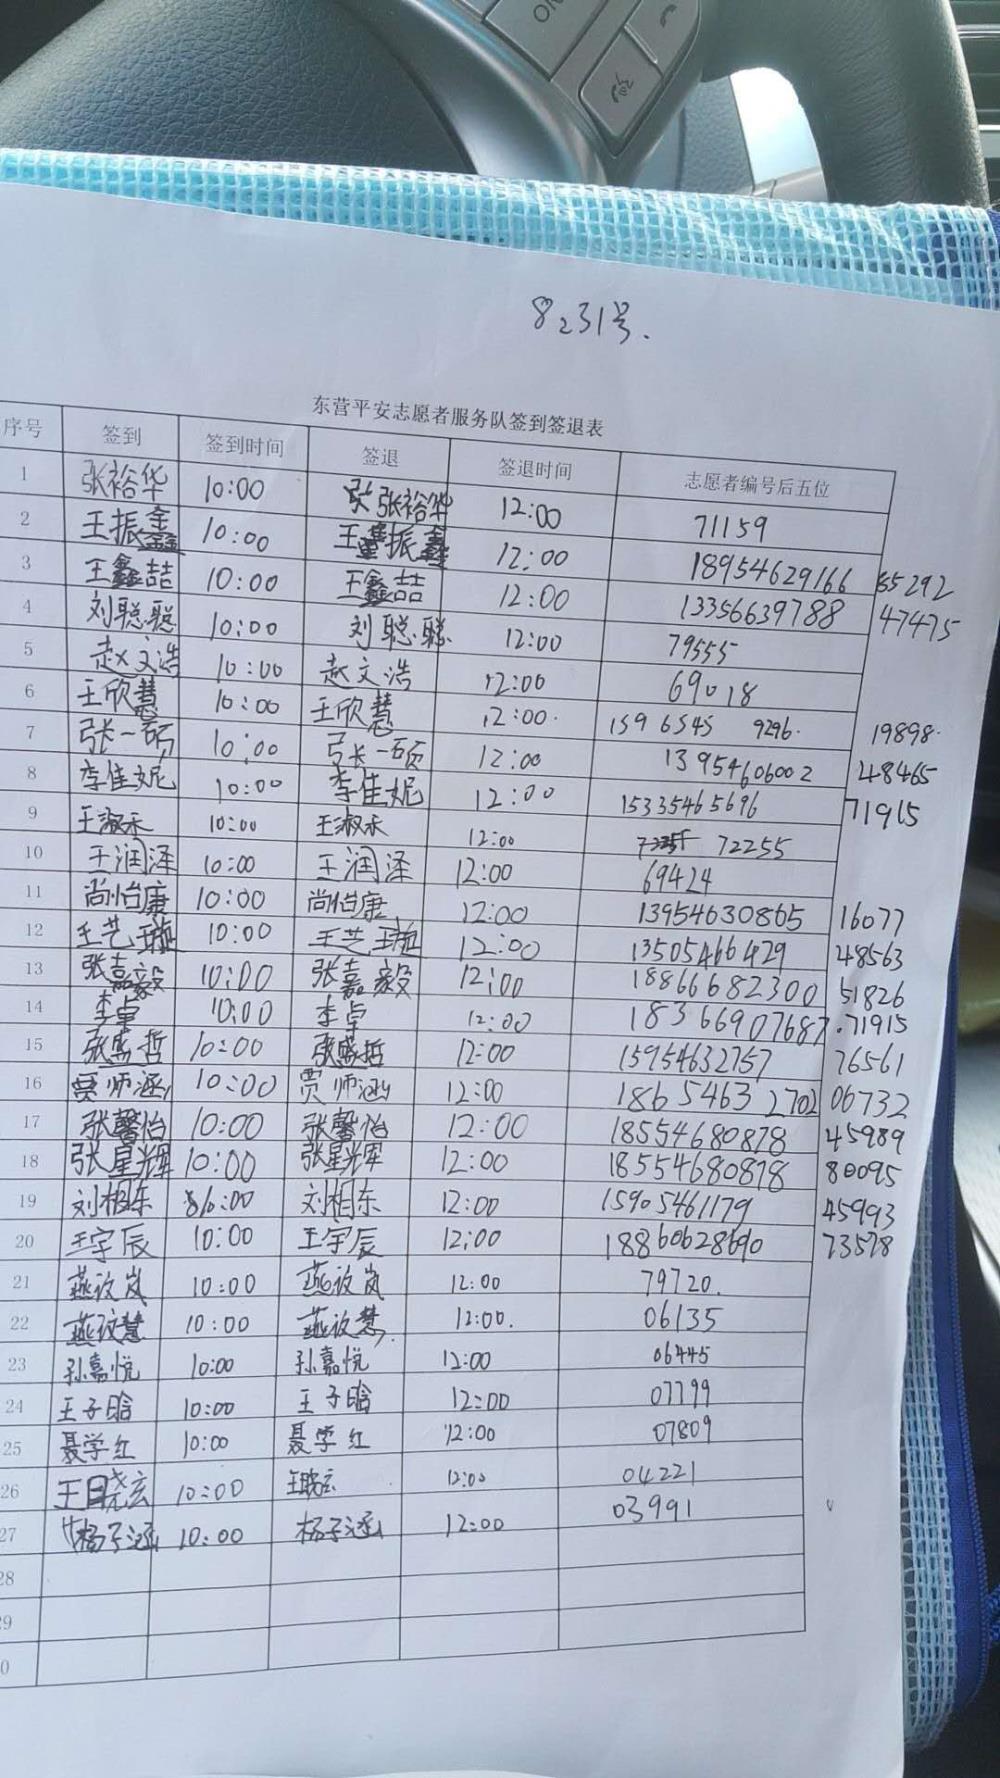 8.31号.
东营平安志愿者服务队签到签退表
序号 签到 签到时间 签退 签退时间 志愿者编号后五位
1 张裕华 10:00 张裕华 12:00 71159
2 王振鑫 10:00 王振鑫 12:00 18954629166 65292
3 王鑫喆 10:00 王鑫喆 12:00 13356639788 47475
4 刘聪聪 10:00 刘聪聪 12:00 79555
5 赵文浩 10:00 赵文浩 12:00 69018
6 王欣慧 10:00 王欣慧 12:00 159 6545 9296 19898
7 张一硕 10:00 张一硕 12:00 13954606002 48465
8 李佳妮 10:00 李佳妮 12:00 15335465696 71915
9 王淑禾 10:00 王淑禾 12:00 72255
10 王润泽 10:00 王润泽 12:00 69424
11 尚怡康 10:00 尚怡康 12:00 13954630865 16077
12 王艺璇 10:00 王艺璇 12:00 13505466429 48563
13 张嘉毅 10:00 张嘉毅 12:00 18866682300 51826
14 李卓 10:00 李卓 12:00 18366907687 71915
15 张盛哲 10:00 张盛哲 12:00 15954632757 76561
16 贾师涵 10:00 贾师涵 12:00 1865463 2702 06732
17 张馨怡 10:00 张馨怡 12:00 18554680878 45989
18 张星辉 10:00 张星辉 12:00 18554680878 80095
19 刘相东 10:00 刘相东 12:00 15905461179 45993
20 王宇辰 10:00 王宇辰 12:00 18860628690 73578
21 燕 岚 10:00 燕 岚 12:00 79720.
22 燕 慧 10:00 燕 慧 12:00. 06135
23 孙嘉悦 10:00 孙嘉悦 12:00 06445
24 王子晗 10:00 王子晗 12:00 07799
25 聂学红 10:00 聂学红 12:00 07809
26 王晓玄 10:00 王晓玄 12:00 04221
27 杨子涵 10:00 杨子涵 12:00 03991
28
29
0